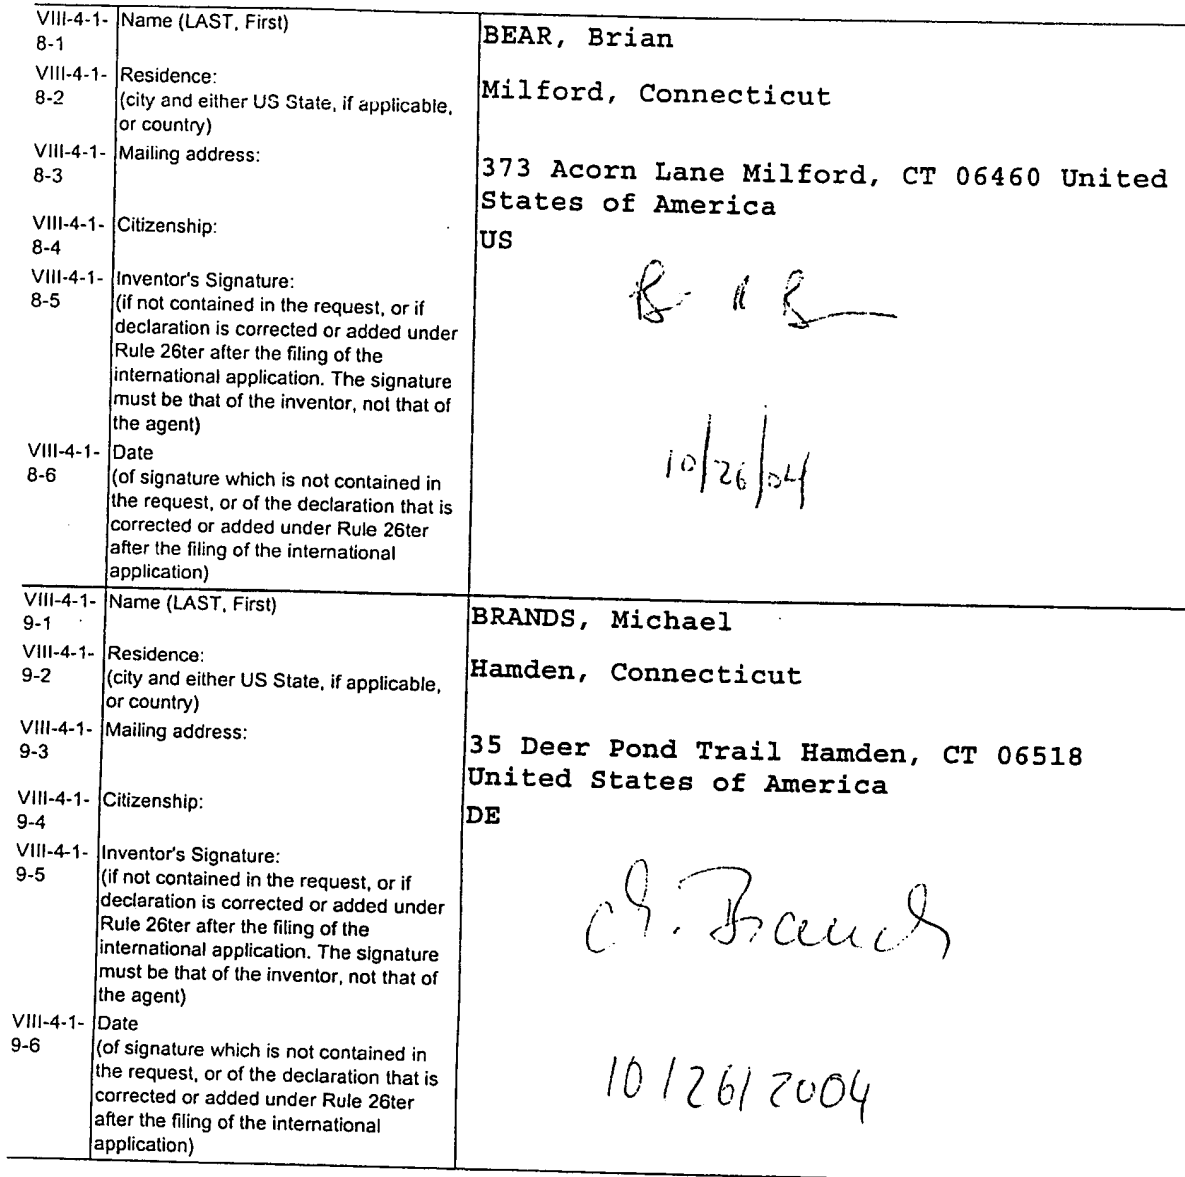 VIII-4-1-8-1 Name (LAST, First) BEAR, Brian
VIII-4-1-8-2 Residence:
(city and either US State, if applicable,
or country) Milford, Connecticut
VIII-4-1-8-3 Mailing address: 373 Acorn Lane Milford, CT 06460 United
States of America
VIII-4-1-8-4 Citizenship: US
VIII-4-1-8-5 Inventor's Signature:
(if not contained in the request, or if
declaration is corrected or added under
Rule 26ter after the filing of the
international application. The signature
must be that of the inventor, not that of
the agent)
VIII-4-1-8-6 Date
(of signature which is not contained in
the request, or of the declaration that is
corrected or added under Rule 26ter
after the filing of the international
application)
10/26/04
VIII-4-1-9-1 Name (LAST, First) BRANDS, Michael
VIII-4-1-9-2 Residence:
(city and either US State, if applicable,
or country) Hamden, Connecticut
VIII-4-1-9-3 Mailing address: 35 Deer Pond Trail Hamden, CT 06518
United States of America
VIII-4-1-9-4 Citizenship: DE
VIII-4-1-9-5 Inventor's Signature:
(if not contained in the request, or if
declaration is corrected or added under
Rule 26ter after the filing of the
international application. The signature
must be that of the inventor, not that of
the agent)
M. Brands
VIII-4-1-9-6 Date
(of signature which is not contained in
the request, or of the declaration that is
corrected or added under Rule 26ter
after the filing of the international
application)
10/26/2004